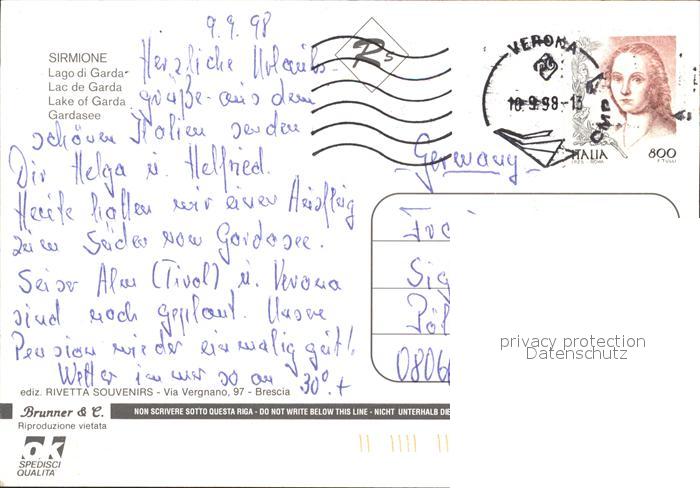 9.9.98
SIRMIONE
Lago di Garda
Lac de Garda
Lake of Garda
Gardasee
Herzliche Urlaubs-
grüße aus dem
schönen Italien senden
Dir Helga u. Helfried.
Heute hatten wir einen Ausflug
zum Süden vom Gardasee.
Seiser Alm (Tirol) u. Verona
sind noch geplant. Unsere
Pension wieder einmalig gut!
Wetter immer so an 30°. +
ediz. RIVETTA SOUVENIRS - Via Vergnano, 97 - Brescia
Brunner & C.
NON SCRIVERE SOTTO QUESTA RIGA - DO NOT WRITE BELOW THIS LINE - NICHT UNTERHALB DIE
Riproduzione vietata
ok
SPEDISCI
QUALITA
Rs
VERONA
10.9.98-13
CMP
ITALIA 800
I.P.Z.S. ROMA F. TULLI
Germany
Fra
Sig
Pöl
0806
privacy protection
Datenschutz